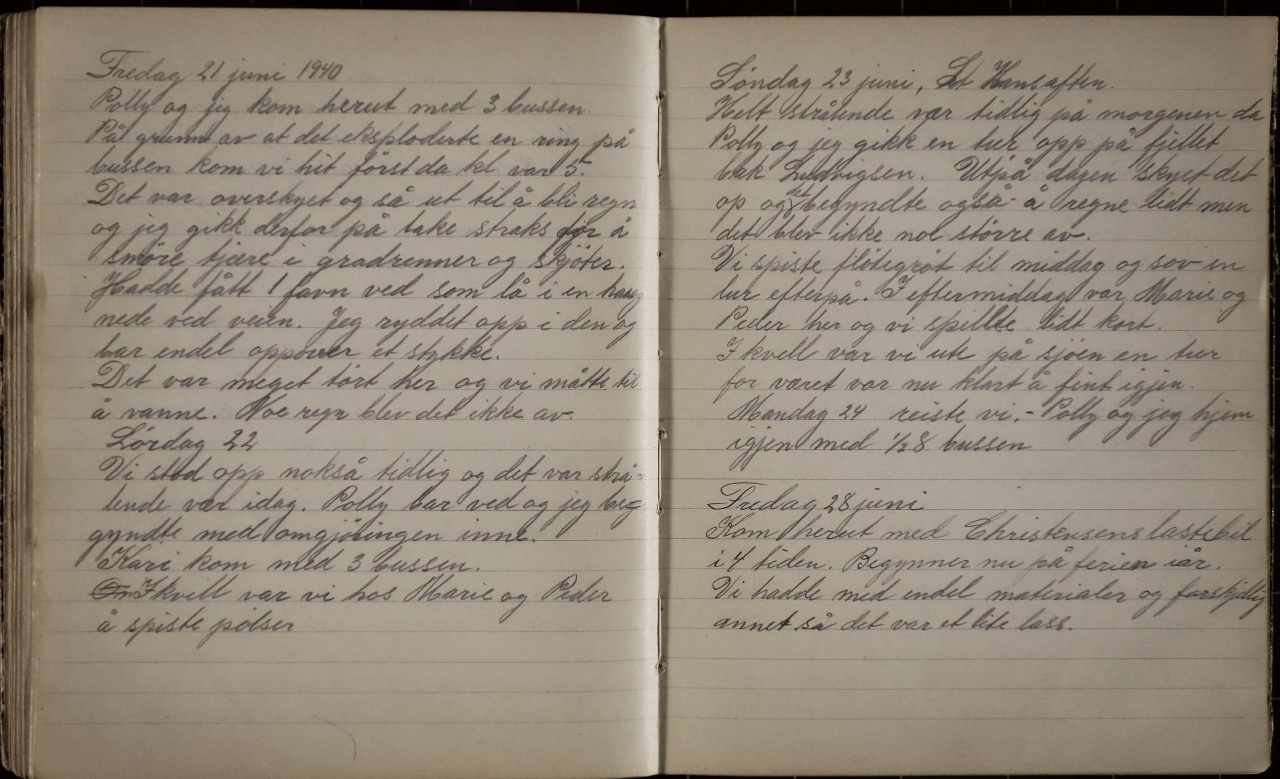 Fredag 21 juni 1940
Polly og jeg kom herut med 3 bussen.
På grunn av at det eksploderte en ring på
bussen kom vi hit först da kl var 5.
Det var overskyet og så ut til å bli regn
og jeg gikk derfor på take straks for å
smöre tjære i gradrenner og skjöter.
Hadde fått 1 favn ved som lå i en haug
nede ved veien. Jeg ryddet opp i den og
bar endel oppover et stykke.
Det var meget tört her og vi måtte til
å vanne. Noe regn blev det ikke av.
Lördag 22
Vi stod opp nokså tidlig og det var strå-
lende vær idag. Polly bar ved og jeg beg
gyndte med omgjöringen inne.
Kari kom med 3 bussen.
Ikvell var vi hos Marie og Peder
å spiste pölser
Söndag 23 juni, St Hansaften.
Helt strålende vær tidlig på morgenen da
Polly og jeg gikk en tur opp på fjellet
bak Ludvigsen. Utpå dagen skyet det
op og det begyndte også å regne lidt men
det blev ikke noe större av.
Vi spiste flötegröt til middag og sov en
tur efterpå. I eftermiddag var Marie og
Peder her og vi spillte lidt kort.
I kvell var vi ute på sjöen en tur
for været var nu klart å fint igjen.
Mandag 24 reiste vi. - Polly og jeg hjem
igjen med ½8 bussen
Fredag 28 juni
Kom herut med Christensens lastebil
i 4 tiden. Begynner nu på ferien iår.
Vi hadde med endel materialer og forskjellig
annet så det var et lite lass.